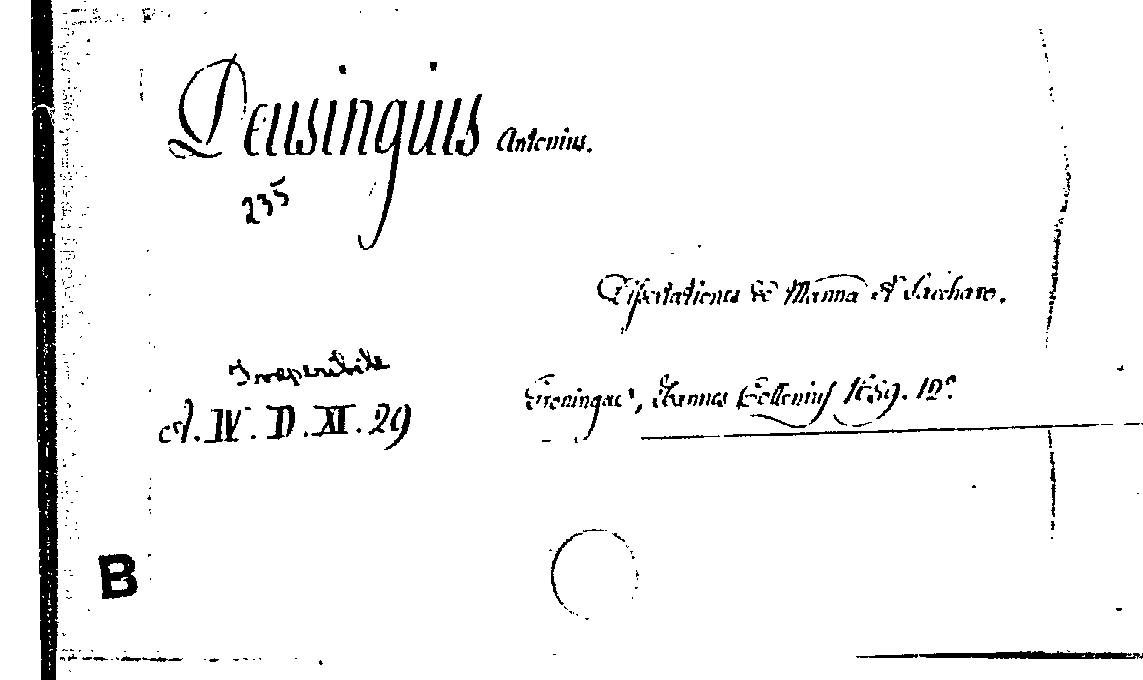 Deusingius Antonius.
235
Dissertationes de Manna et Saccharo.
Ireperibile
Groningae, Joannes Collenius 1659. 12º
A. IV. D. XI. 29
B